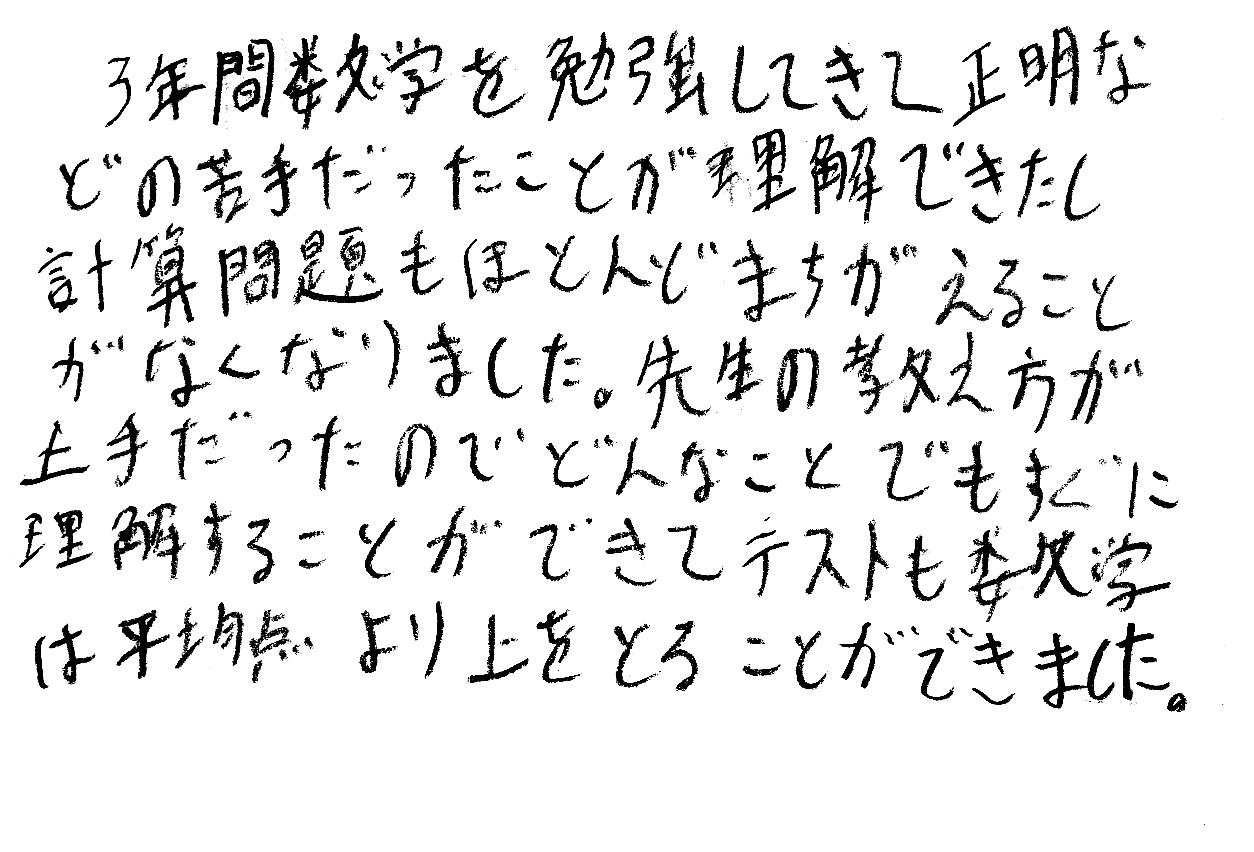 3年間数学を勉強してきて正明な
どの苦手だったことが理解できたし
計算問題もほとんどまちがえること
がなくなりました。先生の教え方が
上手だったのでどんなことでもすぐに
理解することができてテストも数学
は平均点より上をとることができました。